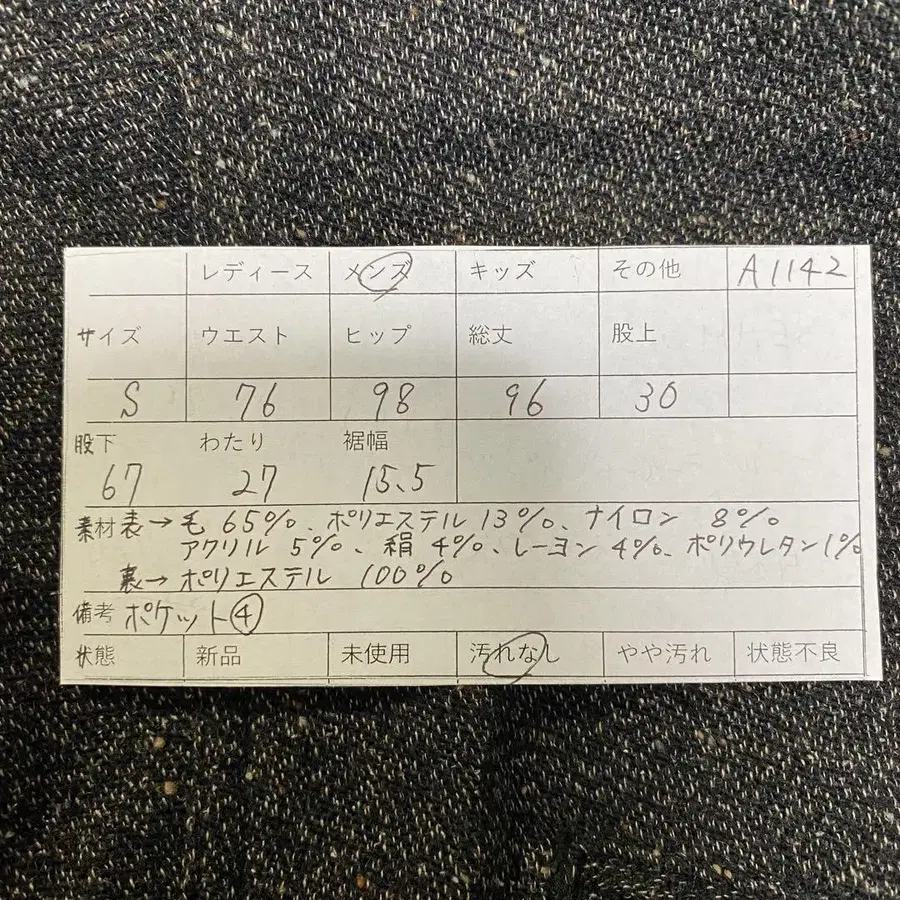 レディース メンズ キッズ その他 A1142
サイズ ウエスト ヒップ 総丈 股上
S 76 98 96 30
股下 わたり 裾幅
67 27 15.5
素材 表→毛 65%、ポリエステル 13%、ナイロン 8%
アクリル 5%、絹 4%、レーヨン 4%、ポリウレタン1%
裏→ポリエステル 100%
備考 ポケット④
状態 新品 未使用 汚れなし やや汚れ 状態不良